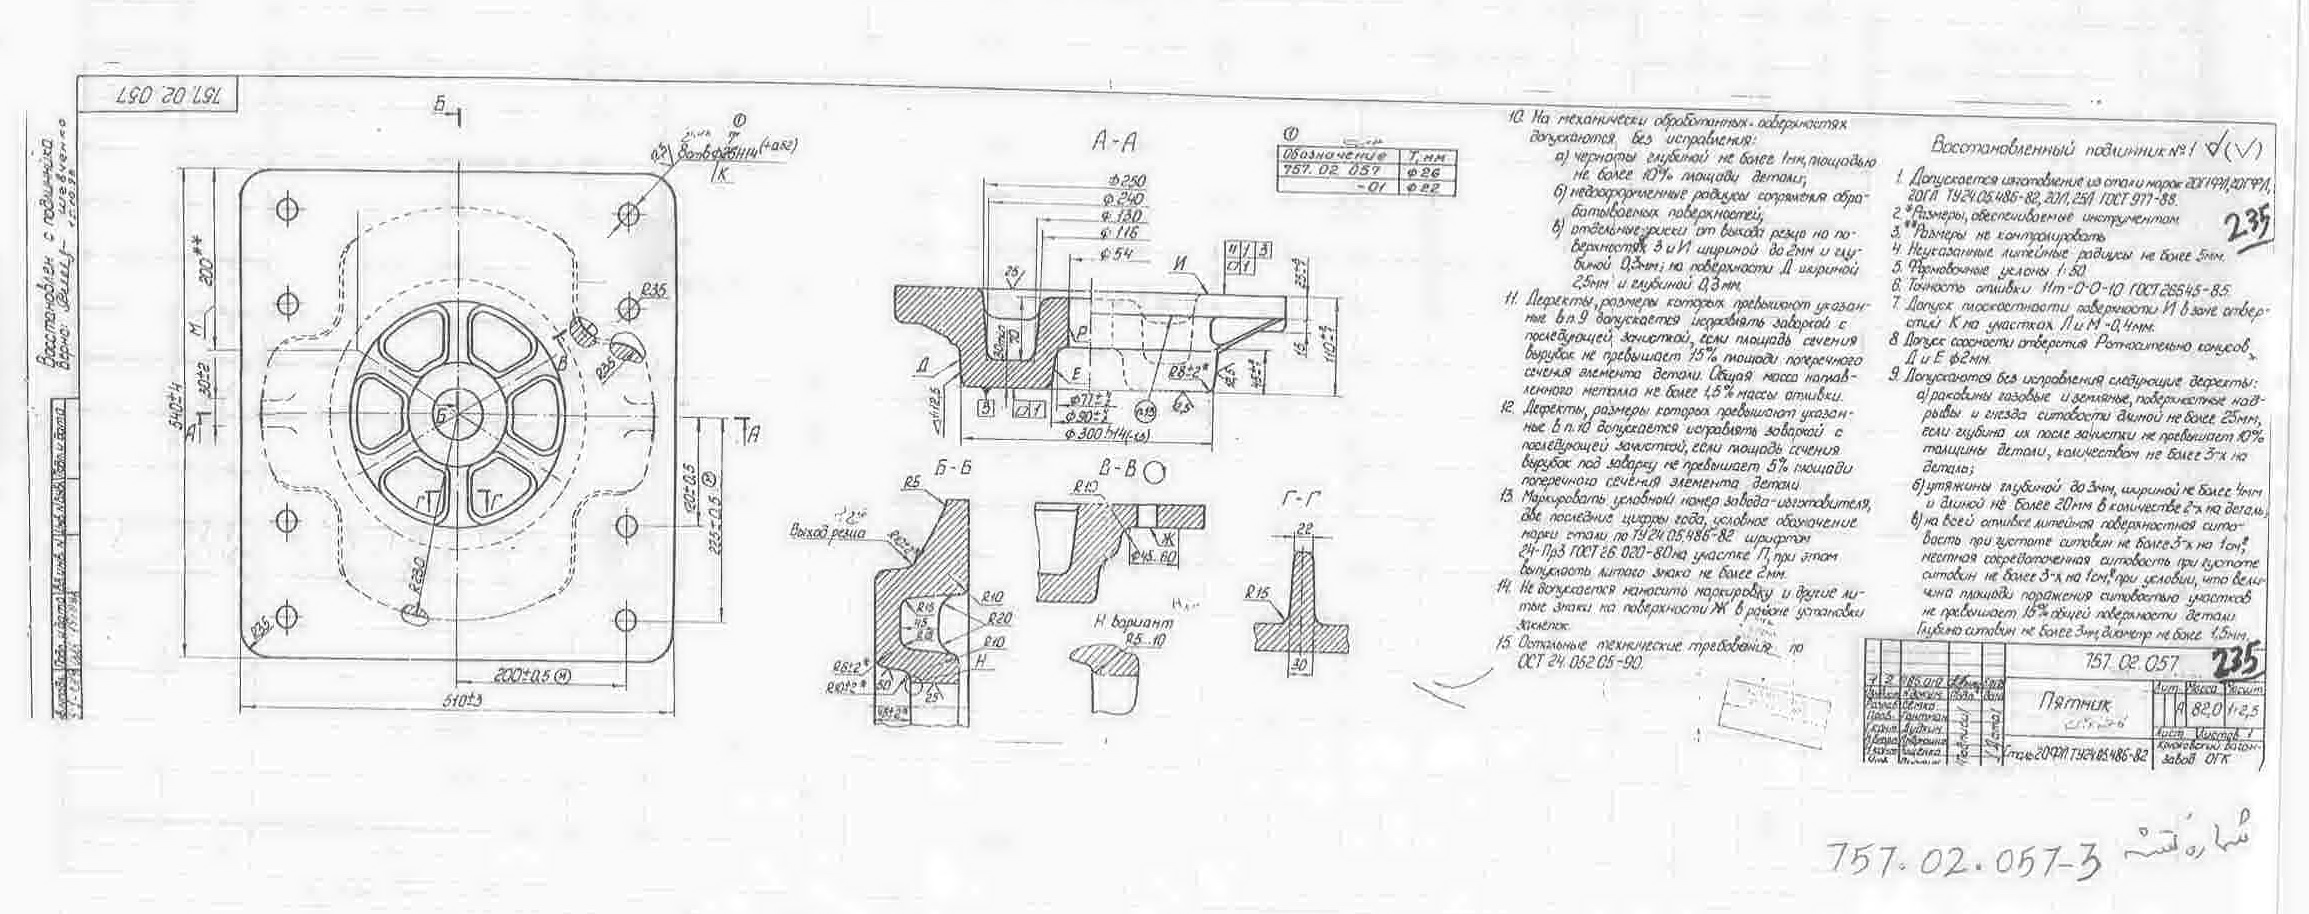 757. 02. 057
Восстановлен с подлинника
Верно: Шевченко
Б
А-А
Φ250
Φ240
Φ130
Φ116
Φ54
И
Д
Е
Р
Φ300h14
Обозначение Т, мм
757. 02 057 Φ26
-01 Φ22
540±4
200**
М
30±2
R35
R35
R290
R35
Б
Г Г
А
120±0,5
225±0,5 (М)
200±0,5 (М)
510±3
К
Б-Б
R5
Выход резца
R10
R20
R10
Н
В-В
R10
Ж
Φ48..60
Н вариант
R5..10
Г-Г
22
R15
30
10. На механически обработанных поверхностях
допускаются без исправления:
а) черноты глубиной не более 1мм, площадью
не более 10% площади детали;
б) недооформленные радиусы сопряжения обра-
батываемых поверхностей;
в) отдельные риски от выхода резца на по-
верхностях З и И шириной до 2мм и глу-
биной 0,3мм; на поверхности Д шириной
2,5мм и глубиной 0,3 мм.
11. Дефекты, размеры которых превышают указан-
ные в п.9 допускается исправлять заваркой с
последующей зачисткой, если площадь сечения
вырубок не превышает 15% площади поперечного
сечения элемента детали. Общая масса наплав-
ленного металла не более 1,5% массы отливки.
12. Дефекты, размеры которых превышают указан-
ные в п.10 допускается исправлять заваркой с
последующей зачисткой, если площадь сечения
вырубок под заварку не превышает 5% площади
поперечного сечения элемента детали
13. Маркировать условный номер завода-изготовителя,
две последние цифры года, условное обозначение
марки стали по ТУ24.05.486-82 шрифтом
24-Пр3 ГОСТ 26.020-80 на участке П, при этом
выпуклость литого знака не более 2мм.
14. Не допускается наносить маркировку и другие ли-
тые знаки на поверхности Ж в районе установки
заклепок.
15. Остальные технические требования по
ОСТ 24.052.05-90.
Восстановленный подлинник №1
1. Допускается изготовление из стали марок 20Г1ФЛ, 20ГФЛ,
20ГЛ ТУ24.05.486-82, 20Л, 25Л ГОСТ 977-88.
2.*Размеры, обеспечиваемые инструментом
3.**Размеры не контролировать
235
4. Неуказанные литейные радиусы не более 5мм.
5. Формовочные уклоны 1:50
6. Точность отливки 11т-0-0-10 ГОСТ 26645-85
7. Допуск плоскостности поверхности И в зоне отвер-
стий К на участках Л и М -0,4мм.
8. Допуск соосности отверстия Р относительно конусов
Д и Е Φ2мм.
9. Допускаются без исправления следующие дефекты:
а) раковины газовые и земляные, поверхностные над-
рывы и гнезда ситовости длиной не более 25мм,
если глубина их после зачистки не превышает 10%
толщины детали, количеством не более 3-х на
деталь;
б) утяжины глубиной до 3мм, шириной не более 4мм
и длиной не более 20мм в количестве 2-х на деталь;
в) на всей отливке литейная поверхностная сито-
вость при густоте ситовин не более 3-х на 1см²,
местная сосредоточенная ситовость при густоте
ситовин не более 3-х на 1см² при условии, что вели-
чина площади поражения ситовостью участков
не превышает 15% общей поверхности детали.
Глубина ситовин не более 3мм, диаметр не более 1,5мм.
757. 02. 057
235
Пятник
Лит. Масса Масшт.
А 82,0 1:2,5
Лист Листов 1
Сталь 20ФЛ ТУ24.05.486-82
Крюковский вагон-
завод ОГК
757.02.057-3 شماره نقشه